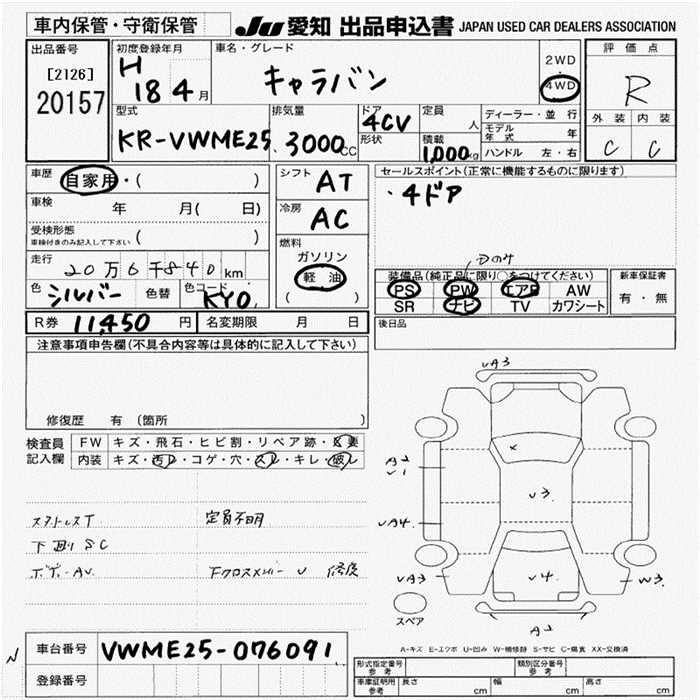 車内保管・守衛保管
JU 愛知 出品申込書 JAPAN USED CAR DEALERS ASSOCIATION
出品番号
[2126]
20157
初度登録年月
H 18 4月
車名・グレード
キャラバン
2WD
4WD
評価点
R
外装 内装
C C
型式
KR-VWME25
排気量
3000cc
ドア
4
形状
CV
定員
人
積載
1,000kg
ディーラー・並行
モデル年式 年
ハンドル 左・右
車歴
自家用・( )
車検
年 月( 日)
受検形態
車検付きのみ記入して下さい ( )
走行
20万6千840km
色
シルバー
色替
色コード
KY0
シフト
AT
冷房
AC
燃料
ガソリン
軽油
( )
セールスポイント(正常に機能するものに限ります)
・4ドア
Dのみ
装備品(純正品に限り○をつけてください)
PS PW エアB AW
SR ナビ TV カワシート
新車保証書
有・無
後日品
R券 11,450円 名変期限 月 日
注意事項申告欄(不具合内容等は具体的に記入して下さい)
修復歴 有 (箇所 )
検査員記入欄
FW キズ・飛石・ヒビ割・リペア跡・
内装 キズ・・コゲ・穴・スレ・キレ・破レ
スタットレスT 定員不明
下廻りSC
ボデーAU Fクロスメンバー U 修復
UA3
A2
U1
UA4
UA3
x
U3
U4
W3
A2
スペア
A-キズ E-エクボ U-凹み W-補修跡 S-サビ C-腐食 XX-交換済
N
車台番号 VWME25-076091
登録番号
形式指定番号 参考
類別区分番号 参考
車庫証明用 参考 長さ cm 幅 cm 高さ cm